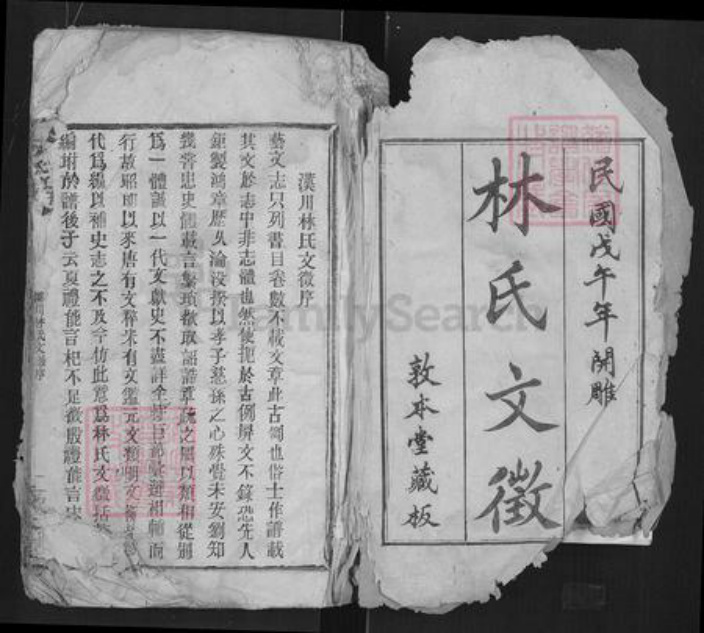 民國戊午年開雕
林氏文徵
敦本堂藏板
漢川林氏文徵序
藝文志只列書目卷數不載文章此古例也俗士作譜載
其文於志中非志體也然使拒於古例屏文不錄恐先人
鉅製鴻章歷久淪沒揆以孝子慈孫之心殊覺未安劉知
幾嘗患史傳載言繁瑣欲取詔誥章疏之屬以類相從別
為一體誠以一代文獻史不盡詳全
行故昭明以來唐有文粹宋有文鑑元文類明文
代為編以補史志之不及今仿此意為林氏文徵
編坿於譜後子云夏禮能言杞不足徵殷禮能言
漢川林氏文徵序
FamilySearch